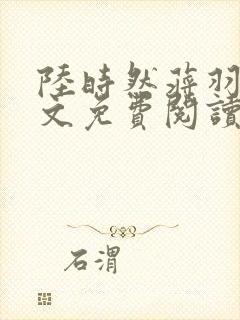 陸時然蔣羽
文免費閱讀
石渭